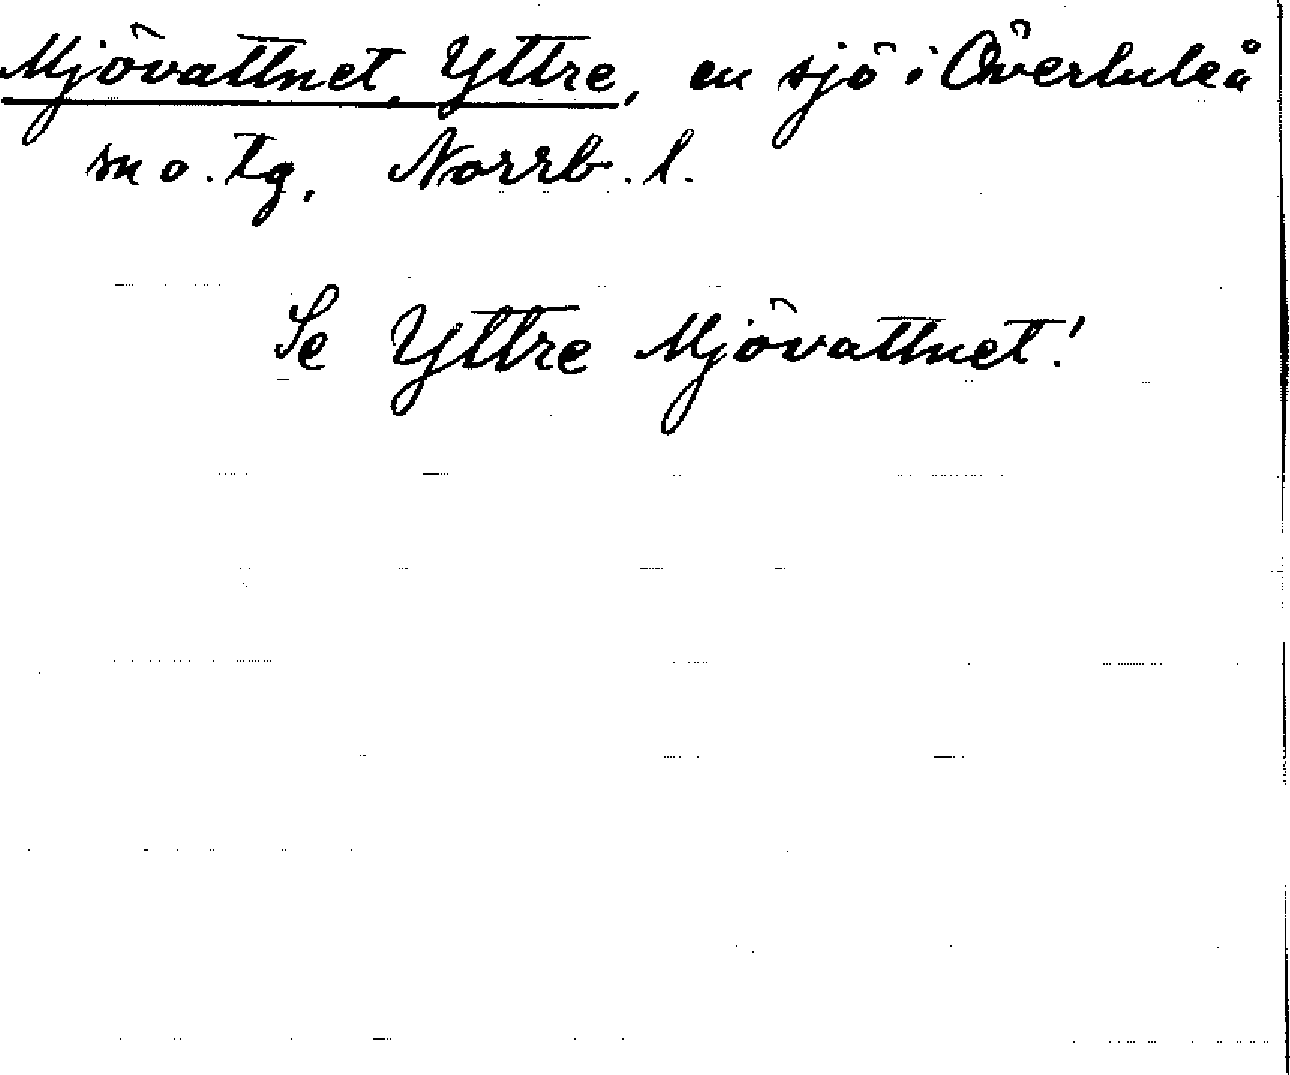 Mjövattnet, Yttre, en sjö i Överluleå
sn o. tg, Norrb. l.
Se Yttre Mjövattnet!